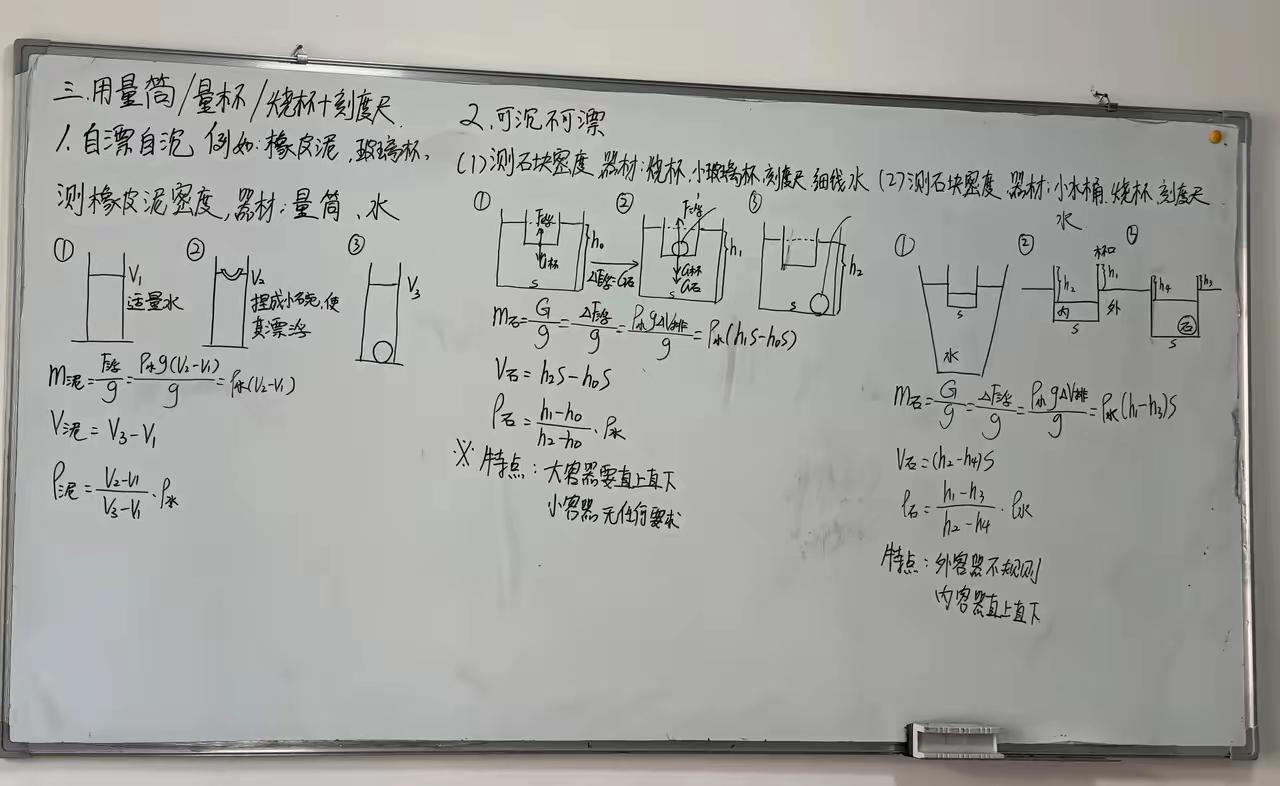 三.用量筒/量杯/烧杯+刻度尺
1.自漂自沉 例如:橡皮泥,玻璃杯,
测橡皮泥密度,器材:量筒、水
① V₁ 适量水
② V₂ 捏成小碗,使其漂浮
③ V₃
m泥=F浮/g=ρ水g(V₂-V₁)/g=ρ水(V₂-V₁)
V泥=V₃-V₁
ρ泥=(V₂-V₁)/(V₃-V₁)·ρ水
2.可沉不可漂
(1)测石块密度 器材:烧杯,小玻璃杯,刻度尺 细线 水
① F浮 G杯 h₀ S
ΔF浮=G石
② F浮 G杯 G石 h₁ S
③ h₂ S
m石=G/g=ΔF浮/g=ρ水gΔV排/g=ρ水(h₁S-h₀S)
V石=h₂S-h₀S
ρ石=(h₁-h₀)/(h₂-h₀)·ρ水
※特点:大容器要直上直下
小容器无任何要求
(2)测石块密度 器材:小水桶、烧杯 刻度尺
水
① S 水
② h₂ 内 S 杯口 h₁ 外
③ h₄ 石 S h₃
m石=G/g=ΔF浮/g=ρ水gΔV排/g=ρ水(h₁-h₃)S
V石=(h₂-h₄)S
ρ石=(h₁-h₃)/(h₂-h₄)·ρ水
特点:外容器不规则
内容器直上直下